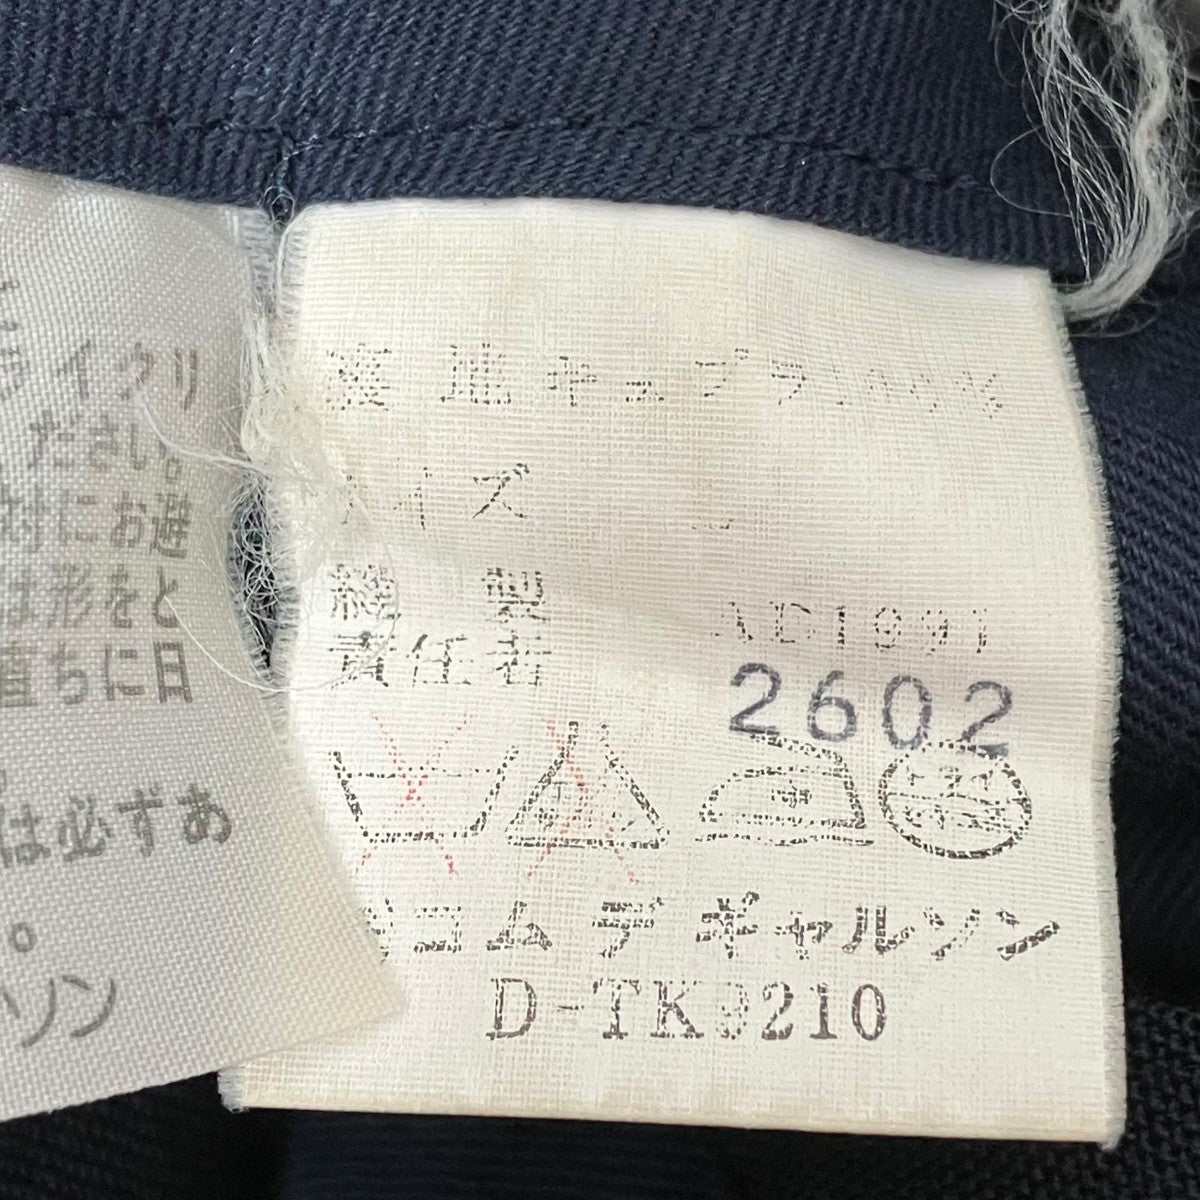 イクリ
ださい。
対にお避
は形をと
直ちに日
は必ずあ
。
ソン
裏地キュプラ100%
サイズ
縫製
責任者
AD1991
2602
中
コムデギャルソン
D-TK9210